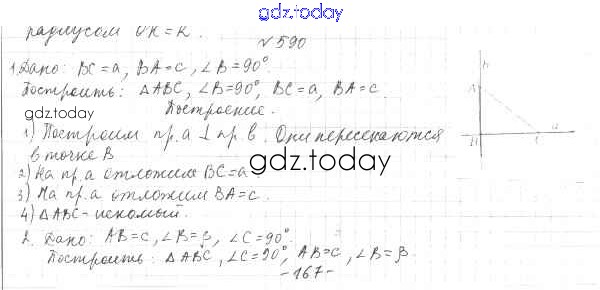 gdz.today
радиусом OK = R.
№590
1. Дано: BC = a, BA = c, ∠B = 90°.
Построить: △ABC, ∠B = 90°, BC = a, BA = c.
gdz.today
Построение.
1) Построим пр. a ⊥ пр. b. Они пересекаются
в точке B
2) На пр. a отложим BC = a
gdz.today
3) На пр. a отложим BA = c.
4) △ABC - искомый.
2. Дано: AB = c, ∠B = β, ∠C = 90°.
Построить: △ABC, ∠C = 90°, AB = c, ∠B = β.
-167-
A
a